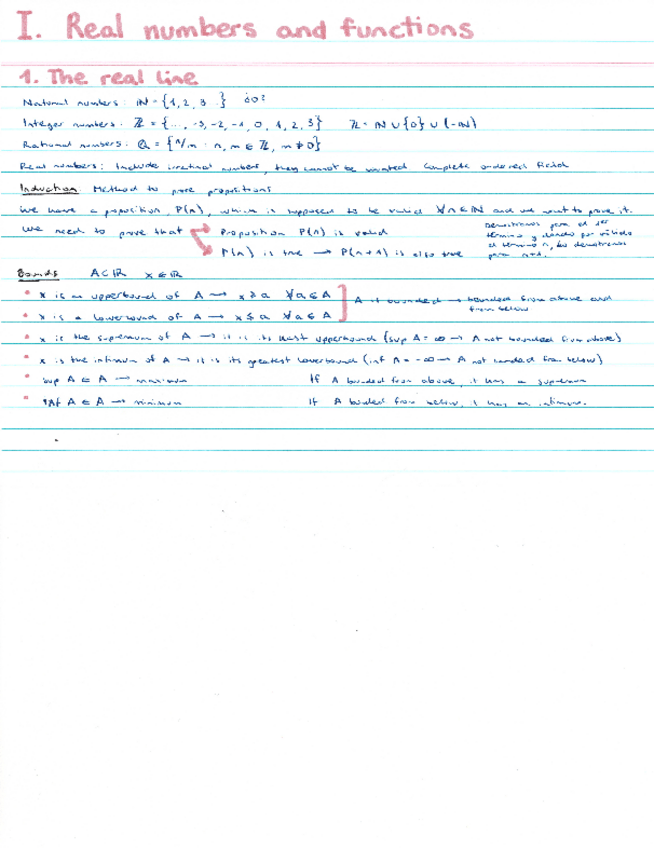 I. Real numbers and functions
1. The real line
Natural numbers: ℕ = {1, 2, 3 ...} ¿0?
Integer numbers: ℤ = {..., -3, -2, -1, 0, 1, 2, 3} ℤ = ℕ ∪ {0} ∪ (-ℕ)
Rational numbers: ℚ = {n/m : n, m ∈ ℤ, m ≠ 0}
Real numbers: Include irrational numbers, they cannot be Complete ordered field
Induction Method to prove propositions
We have a proposition, P(n), which is supposed to be valid ∀n∈ℕ and we want to prove it.
We need to prove that Proposition P(n) is valid
P(n) is true → P(n+1) is also true
Demostramos para el 1er
término y dando por válido
el término n, lo demostramos
para n+1.
Bounds A⊂ℝ x∈ℝ
• x is an upperbound of A → x ≥ a ∀a∈A
• x is a lowerbound of A → x ≤ a ∀a∈A
A is bounded → bounded from above and
from below
• x is the supremum of A → it is its least upperbound (sup A = ∞ → A not bounded from above)
• x is the infimum of A → it is its greatest lowerbound (inf A = -∞ → A not bounded from below)
• sup A ∈ A → maximum If A bounded from above, it has a supremum
• inf A ∈ A → minimum If A bounded from below, it has an infimum.